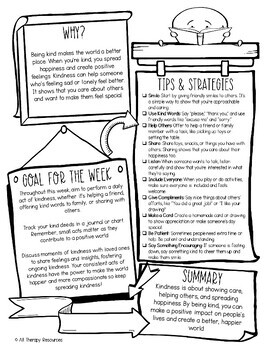 WHY?
Being kind makes the world a better
place. When you're kind, you spread
happiness and create positive
feelings. Kindness can help someone
who's feeling sad or lonely feel better.
It shows that you care about others
and want to make them feel special.
GOAL FOR THE WEEK
Throughout this week, aim to perform a daily
act of kindness, whether it's helping a friend,
offering kind words to family, or sharing with
others.
Track your kind deeds in a journal or chart.
Remember, small acts matter as they
contribute to a positive world.
Discuss moments of kindness with loved ones
to share feelings and insights, fostering
ongoing kindness. Your consistent acts of
kindness have the power to make the world
happier and more compassionate so keep
spreading kindness!
TIPS & STRATEGIES
Smile: Start by giving friendly smiles to others. It's
a simple way to show that you're approachable
and caring.
Use Kind Words: Say "please," "thank you," and use
friendly words like "excuse me" and "sorry."
Help Others: Offer to help a friend or family
member with a task, like picking up toys or
setting the table.
Share: Share toys, snacks, or things you have
with others.
Sharing shows that you care about their
happiness too.
Listen: When someone wants to talk, listen
carefully and show that you're interested in
what they have to say.
Include Everyone: When you play or do activities,
make sure everyone is included and feels
welcome.
Give Compliments: Say nice things about others'
efforts, like "You did a great job!" or "I like your
drawing!"
Make a Card: Create a homemade card or drawing
to show appreciation or make someone's day
special.
Be Patient: Sometimes people need extra time or
help. Be patient and understanding.
Say Something Encouraging: If someone is feeling
down, say something kind to cheer them up and
make them smile.
SUMMARY
Kindness is about showing care,
helping others, and spreading
happiness. By being kind, you can
make a positive impact on people's
lives and create a better, happier
world
© All Therapy Resources